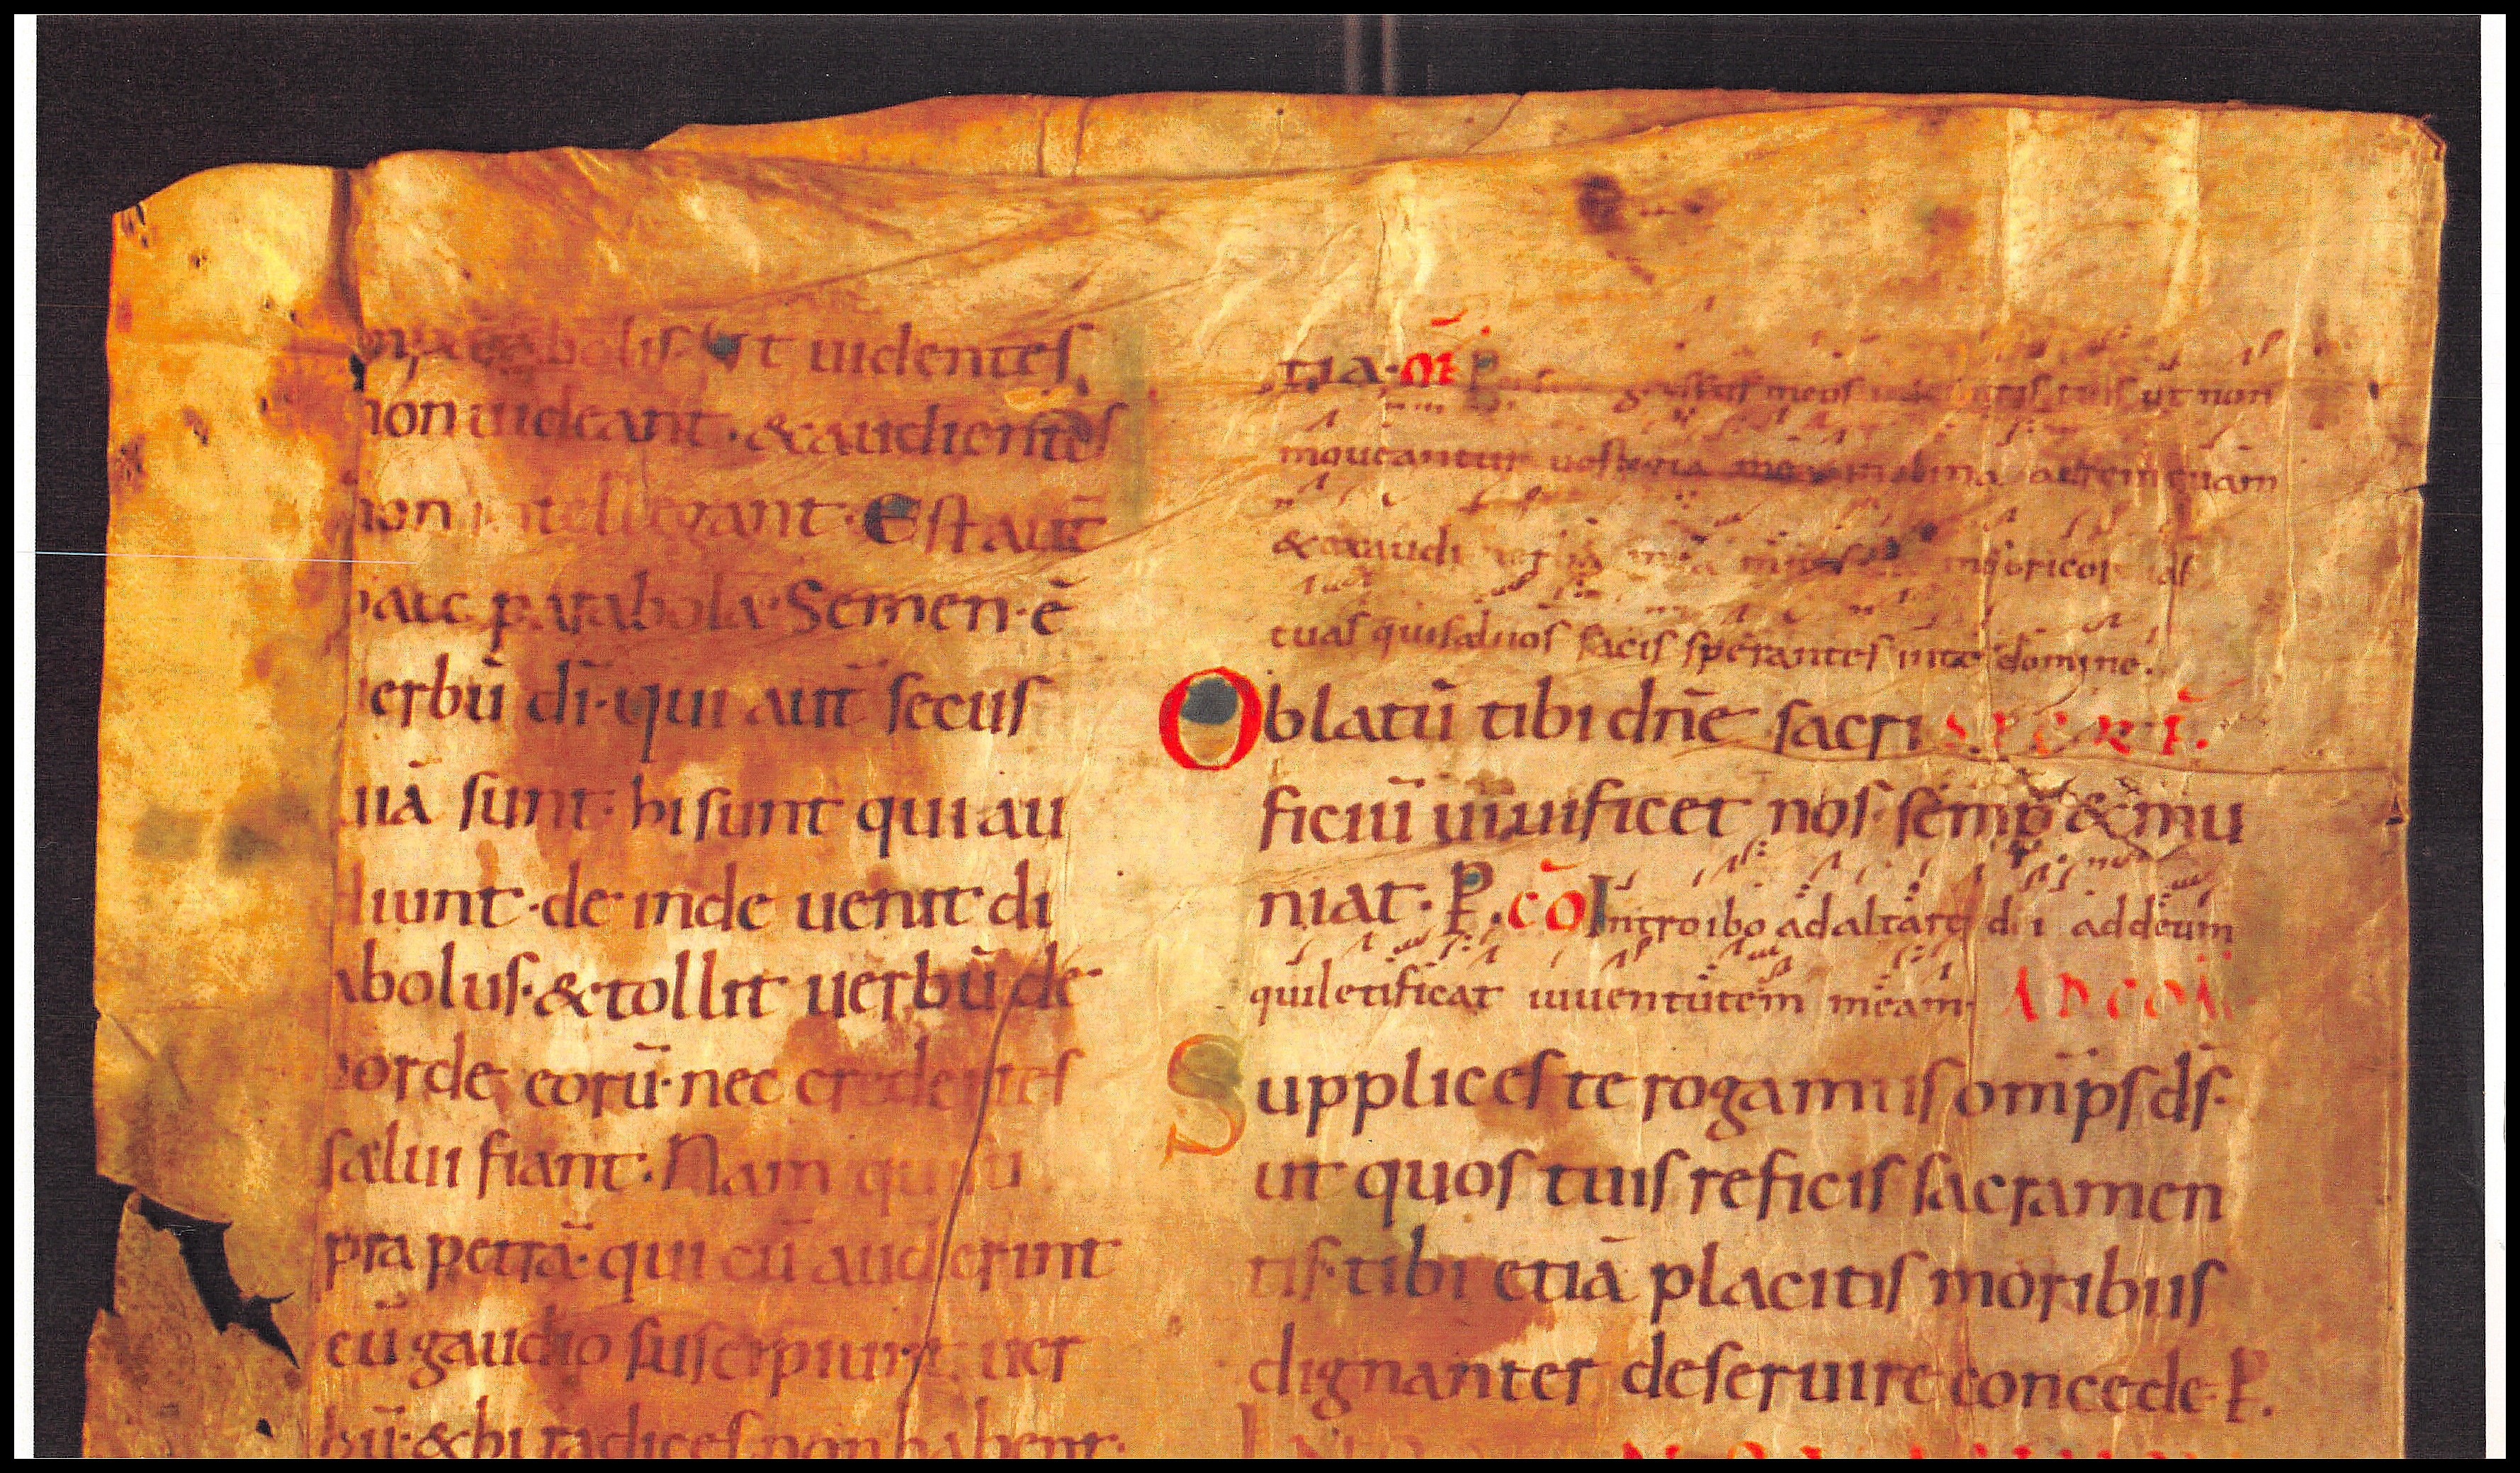 parabolis. Ut uidentes
non uideant. & audientes
non intellegant. Est aut̄
haec parabola. Semen. ē
uerbū dī. qui aut̄ secus
uiā sunt. hi sunt qui au
diunt. de inde uenit di
abolus. & tollit uerbū de
corde eorū. nec credentes
salui fiant. Nam qui su
pra petrā. qui cū audierint
cū gaudio suscipiunt uer
bū. & hi radices non habent.
tia. of̄ P gressus meos tuis ut non
moueantur uestigia mea inclina aurem tuam
& exaudi misericordias
tuas qui saluos facis sperantes in te domine.
Oblatū tibi dnē sacri SECRET.
ficiū uiuificet nos semp & mu
niat. P. cō Introibo ad altare dei ad deum
qui letificat iuuentutem meam. AD COM̄
Supplices te rogamus omp̄s ds̄.
ut quos tuis reficis sacramen
tis. tibi etiā placitis moribus
dignanter deseruire concede. P.